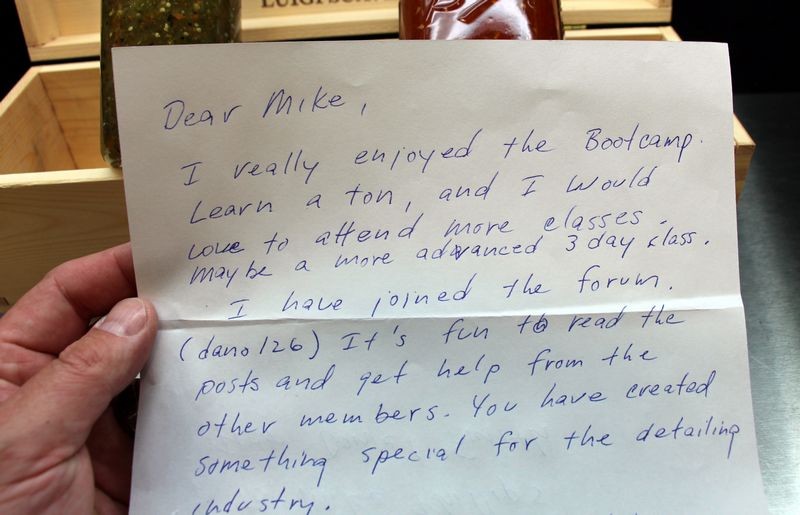 Dear Mike,
I really enjoyed the Bootcamp.
Learn a ton, and I would
Love to attend more classes.
Maybe a more advanced 3 day class.
I have joined the forum.
(dano126) It's fun to read the
posts and get help from the
other members. You have created
something special for the detailing
industry.